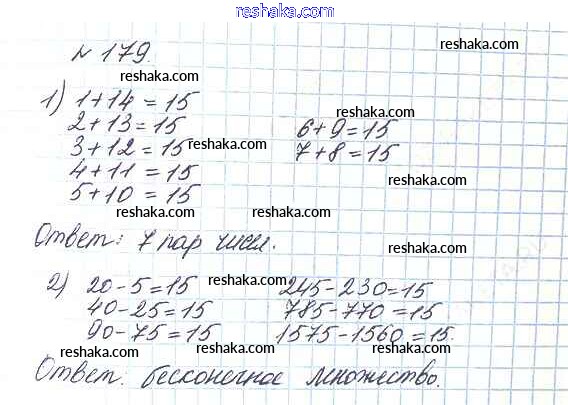 reshaka.com
№ 179.
reshaka.com
reshaka.com
1) 1+14=15
reshaka.com
2+13=15
6+9=15
3+12=15
reshaka.com
7+8=15
reshaka.com
4+11=15
5+10=15
reshaka.com
reshaka.com
Ответ: 7 пар чисел.
reshaka.com
2) 20-5=15
reshaka.com
245-230=15
40-25=15
785-770=15
reshaka.com
90-75=15
reshaka.com
1575-1560=15.
reshaka.com
reshaka.com
Ответ: бесконечное множество.
reshaka.com
reshaka.com